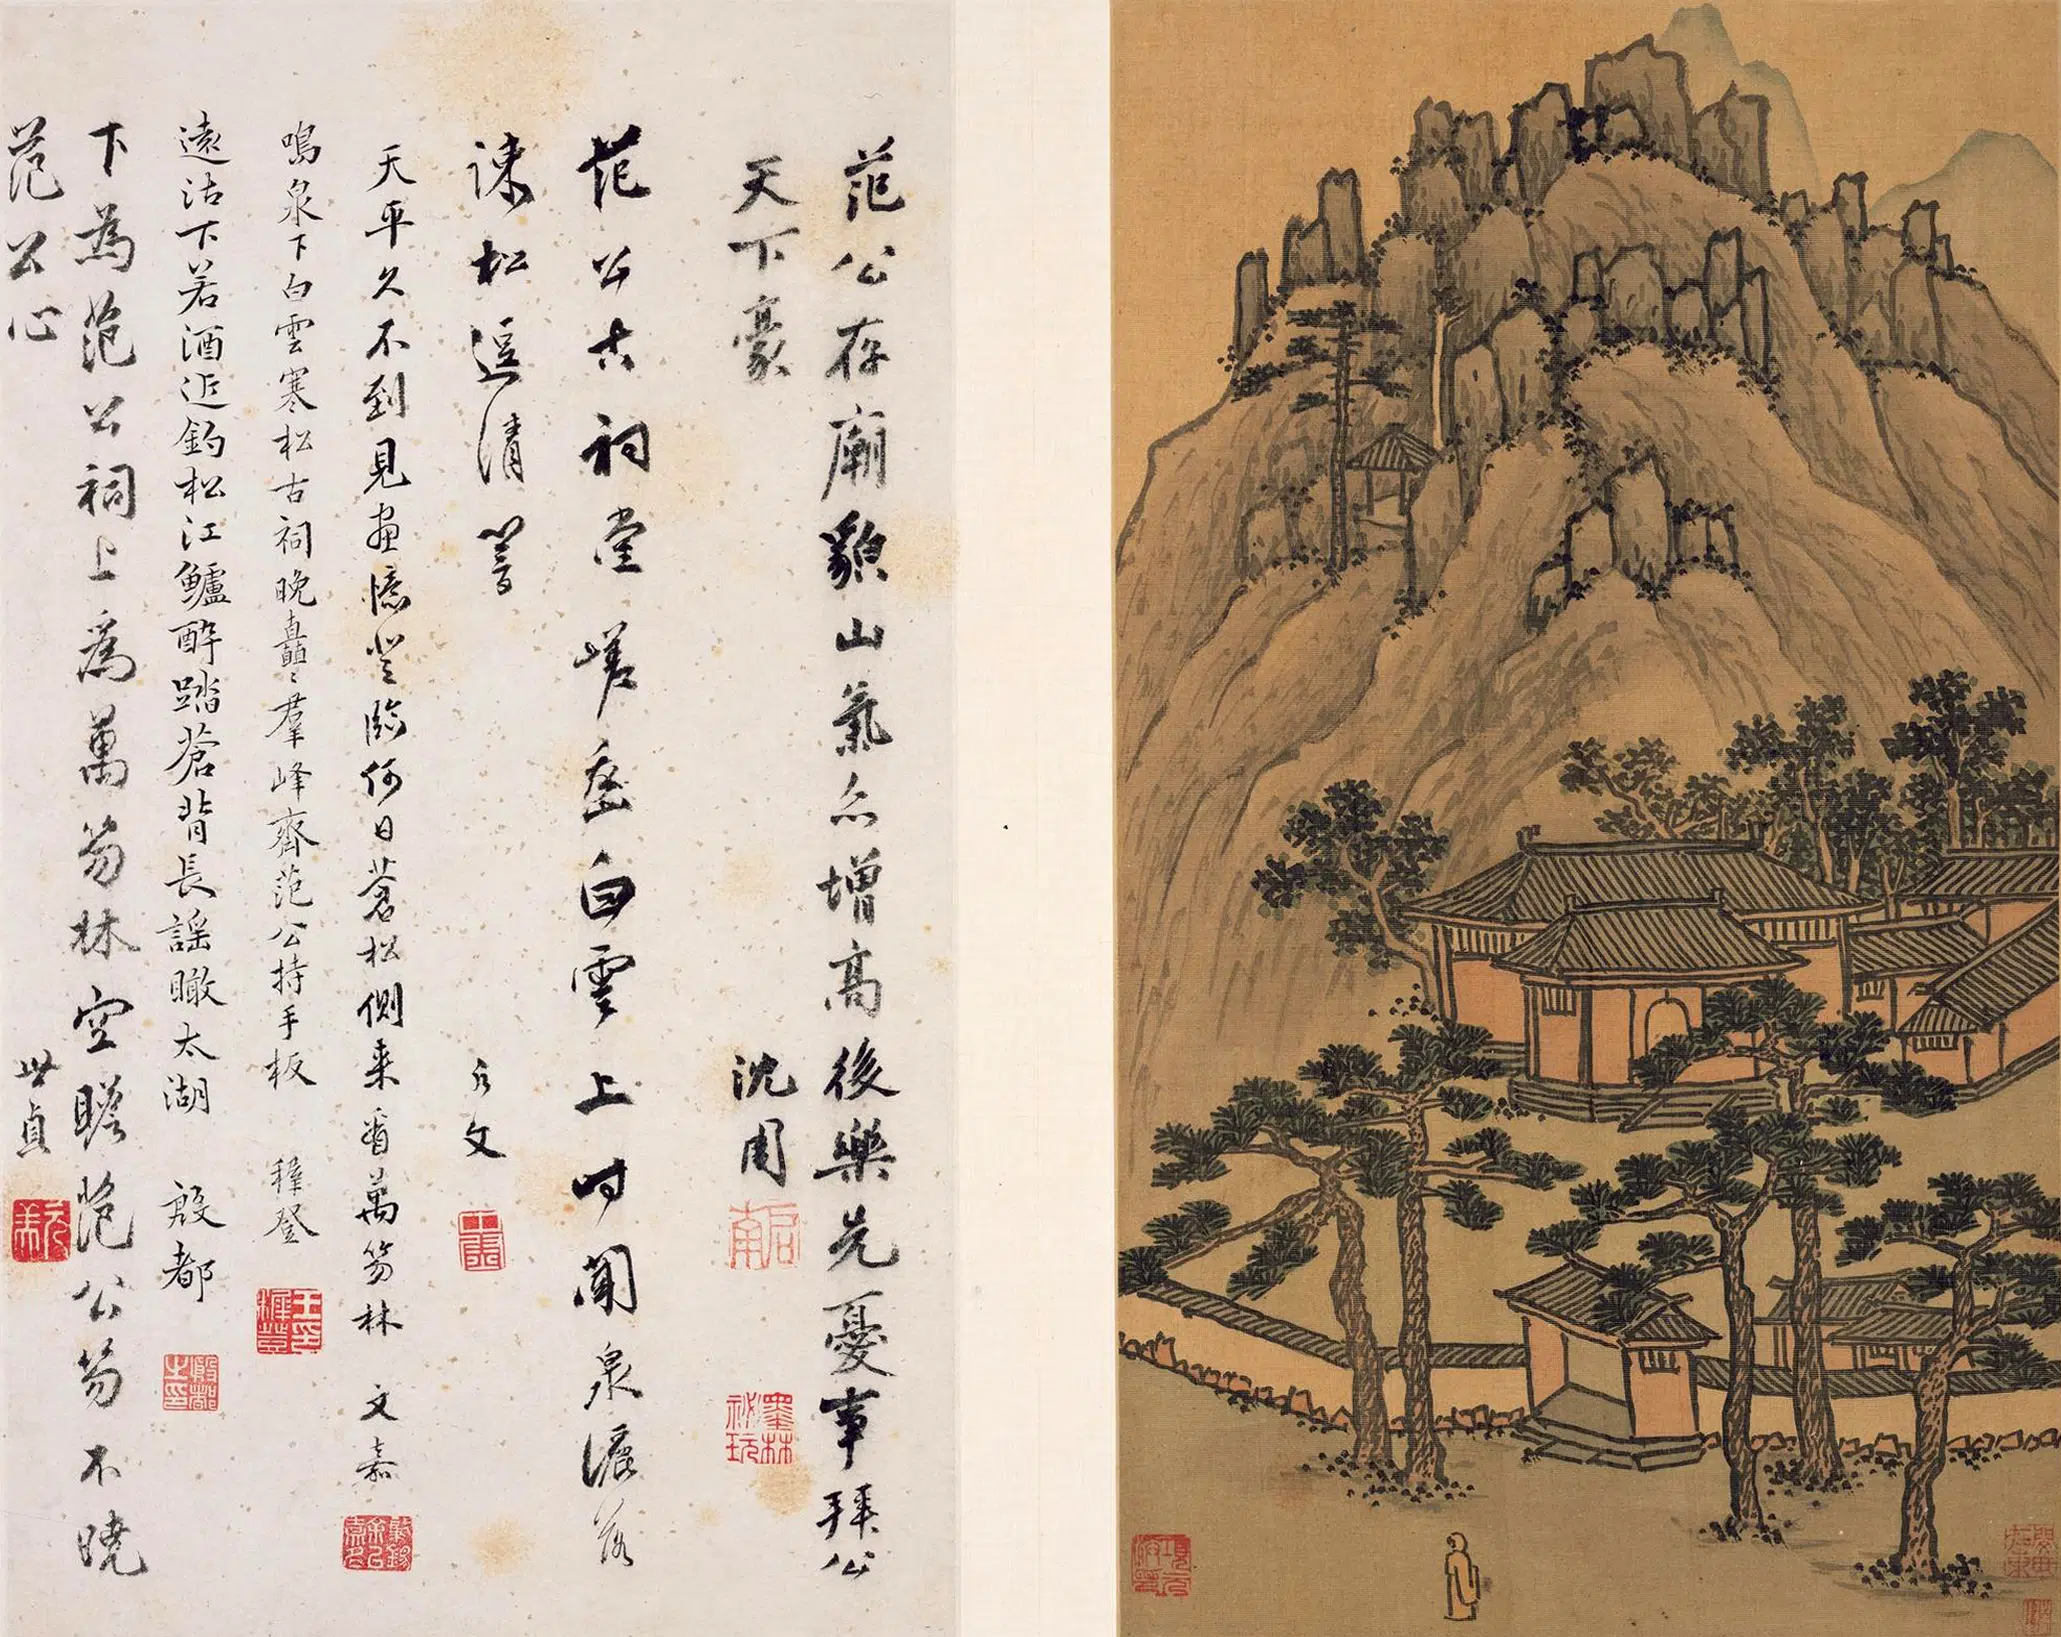 范公存廟貌山氣亦增高後樂先憂事拜公
天下豪 沈周
啟南
墨林祕玩
范公古祠堂嵯峩白雲上時聞泉瀑落
疎松逗清響
天平久不到見畫憶登臨何日蒼松側来看萬笏林 文嘉
鳴泉下白雲寒松古祠晚矗矗羣峰齊范公持手板 穉登
王印穉登
遠沽下若酒近釣松江鱸醉踏蒼背長謡瞰太湖 殷都
殷都之印
下為范公祠上為萬笏林空瞻范公笏不曉
范公心 世貞